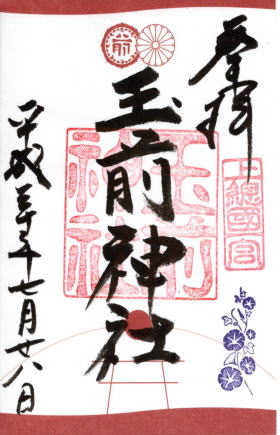 奉拝
上總國一宮
前
玉前神社
玉前
神社
平成三十年七月廿八日